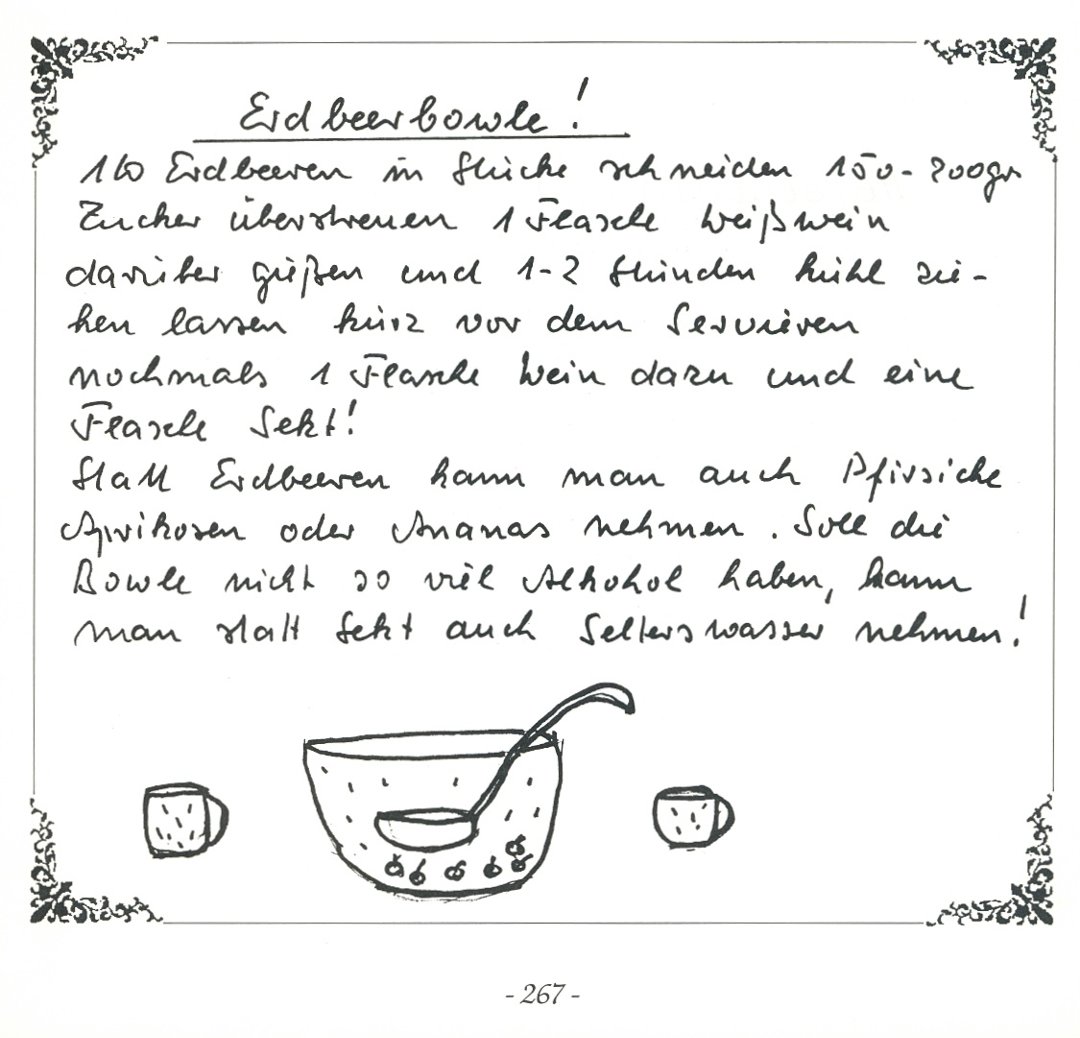 Erdbeerbowle!
1 ℔ Erdbeeren in Stücke schneiden 150-200gr
Zucker überstreuen 1 Flasche Weißwein
darüber gießen und 1-2 Stunden kühl zie-
hen lassen kurz vor dem Servieren
nochmals 1 Flasche Wein dazu und eine
Flasche Sekt!
Statt Erdbeeren kann man auch Pfirsiche
Aprikosen oder Ananas nehmen. Soll die
Bowle nicht so viel Alkohol haben, kann
man statt Sekt auch Selterswasser nehmen!
- 267 -